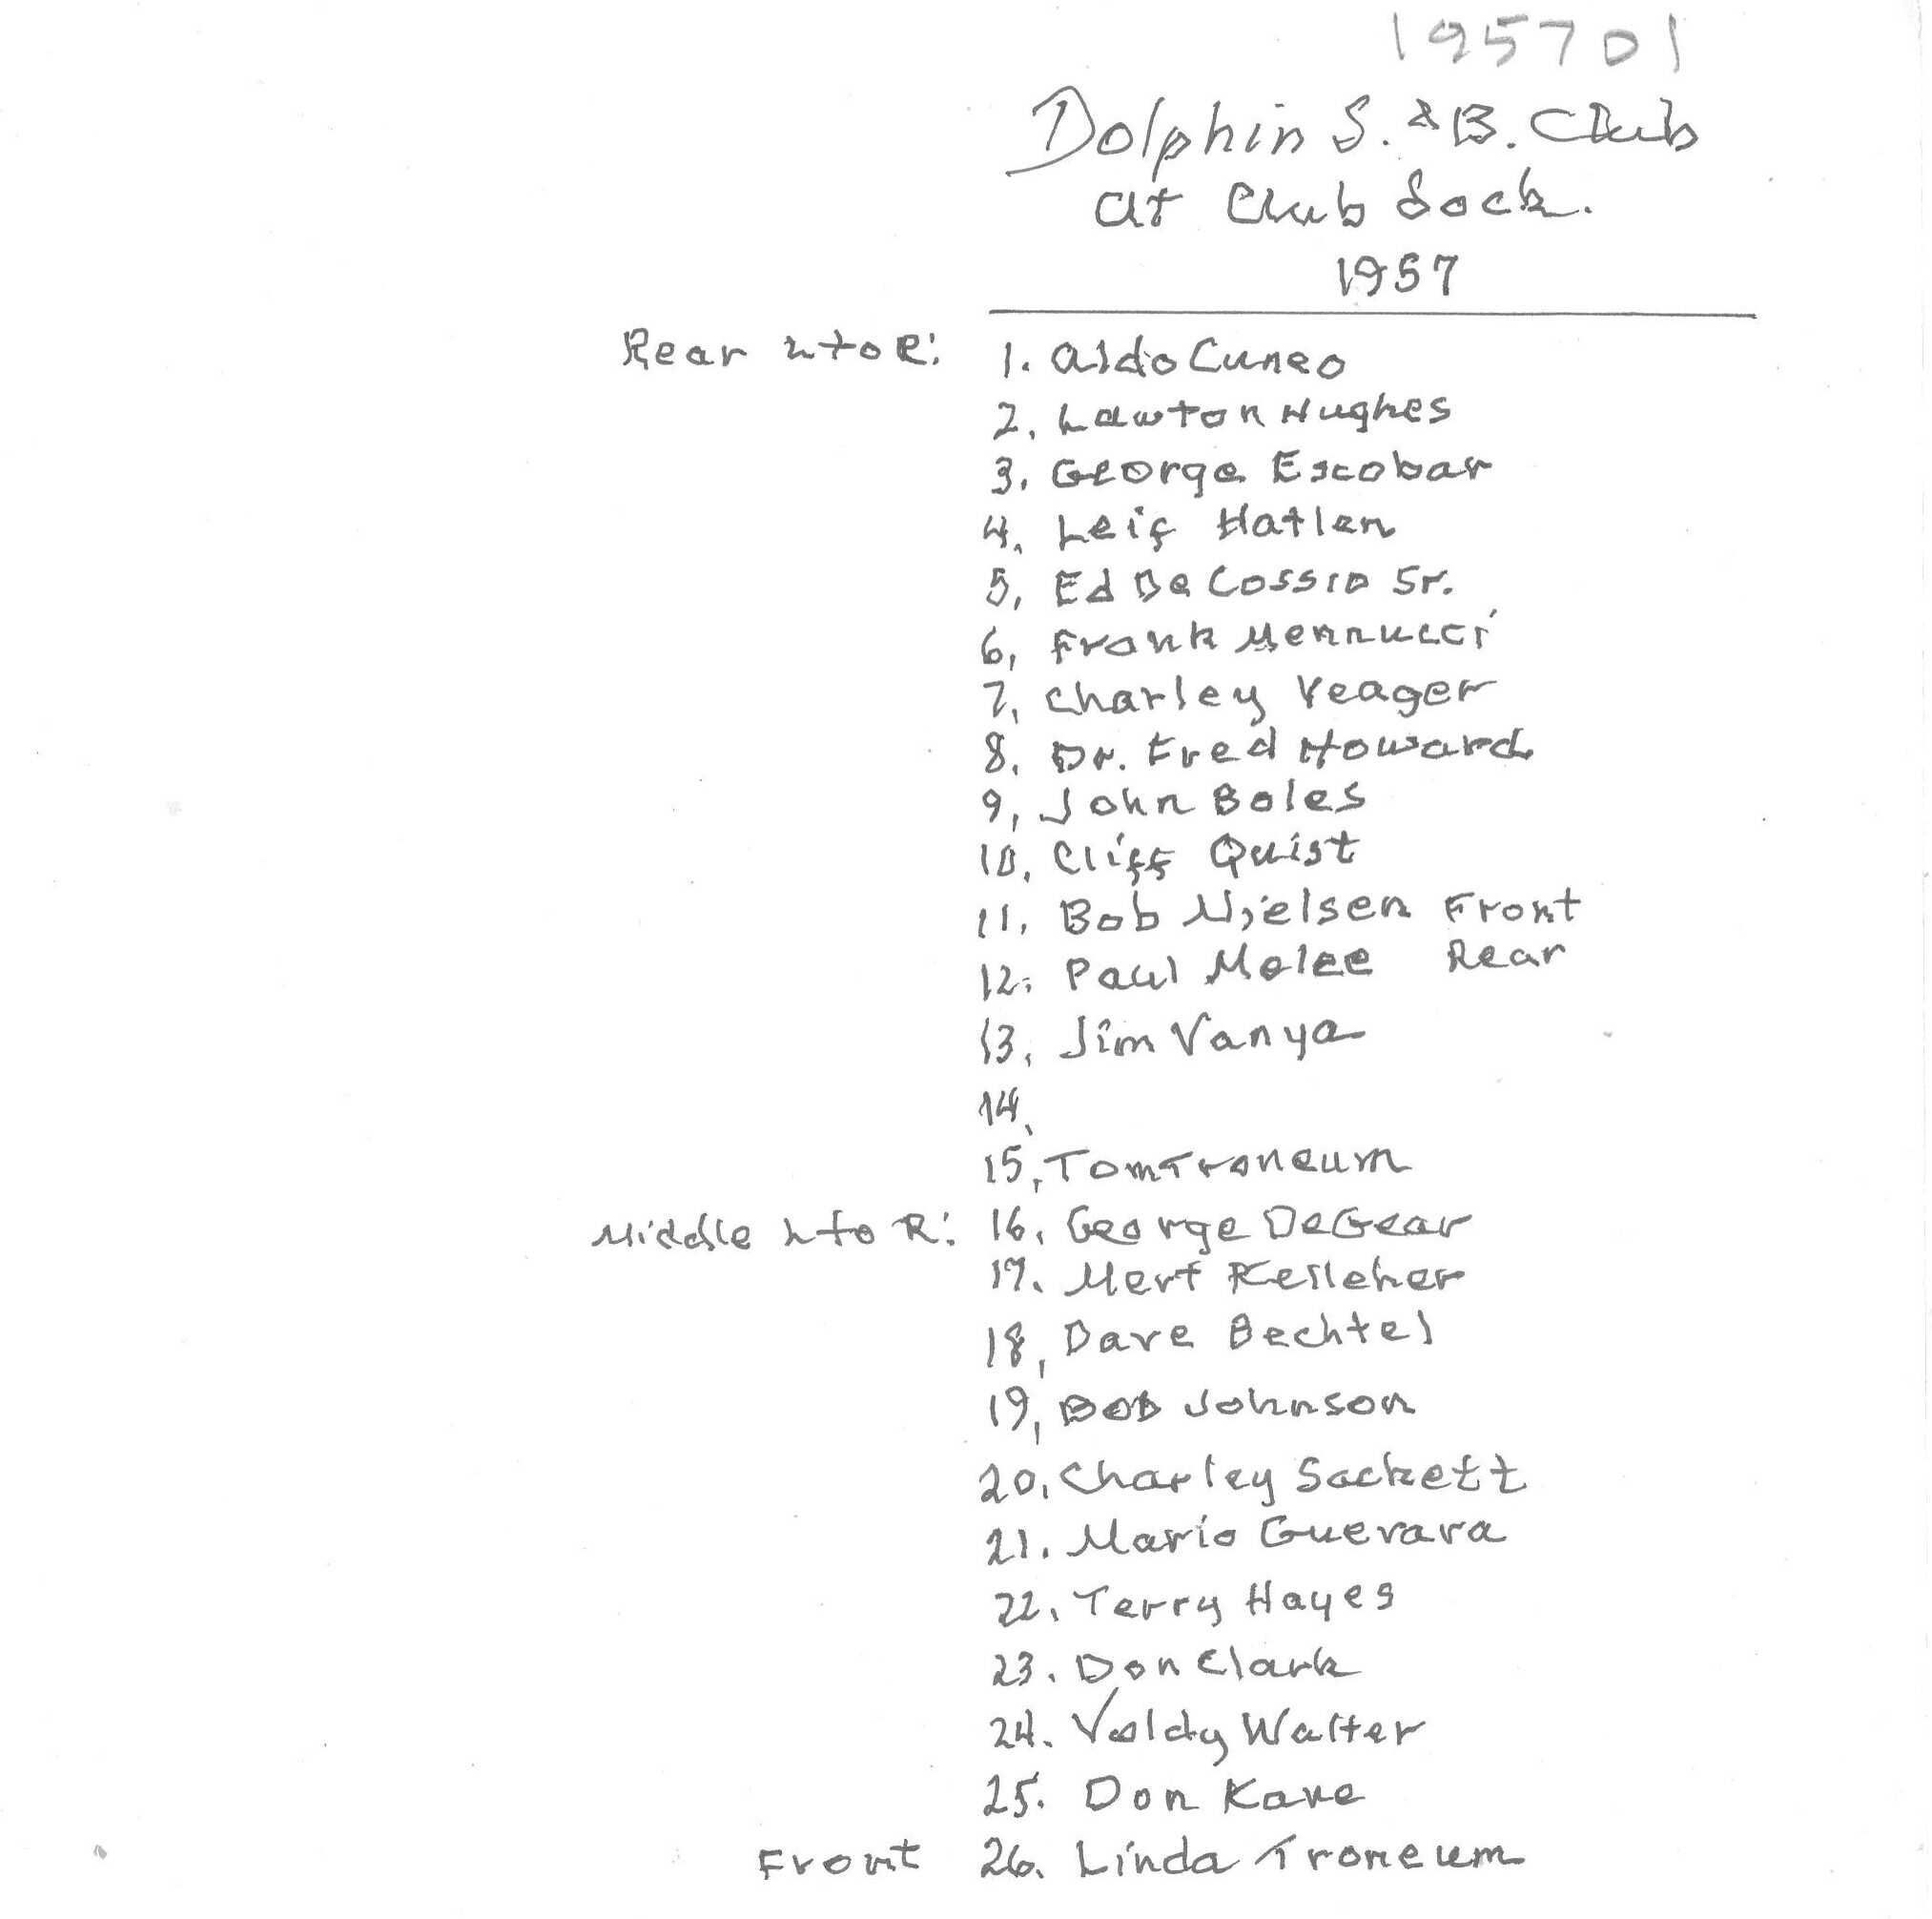 195701
Dolphin S. & B. Club
at Club Dock.
1957
Rear L to R: 1. Aldo Cuneo
2. Lawton Hughes
3. George Escobar
4. Leif Hatlen
5. Ed De Cossio Sr.
6. Frank Mennucci
7. Charley Yeager
8. Dr. Fred Howard
9. John Boles
10. Cliff Quist
11. Bob Njelsen Front
12. Paul Molee Rear
13. Jim Vanya
14.
15. Tom Troneum
Middle L to R: 16. George DeGear
17. Mert Kelleher
18. Dave Bechtel
19. Bob Johnson
20. Charley Sackett
21. Mario Guevara
22. Terry Hayes
23. Don Clark
24. Voldy Walter
25. Don Kane
Front 26. Linda Troneum